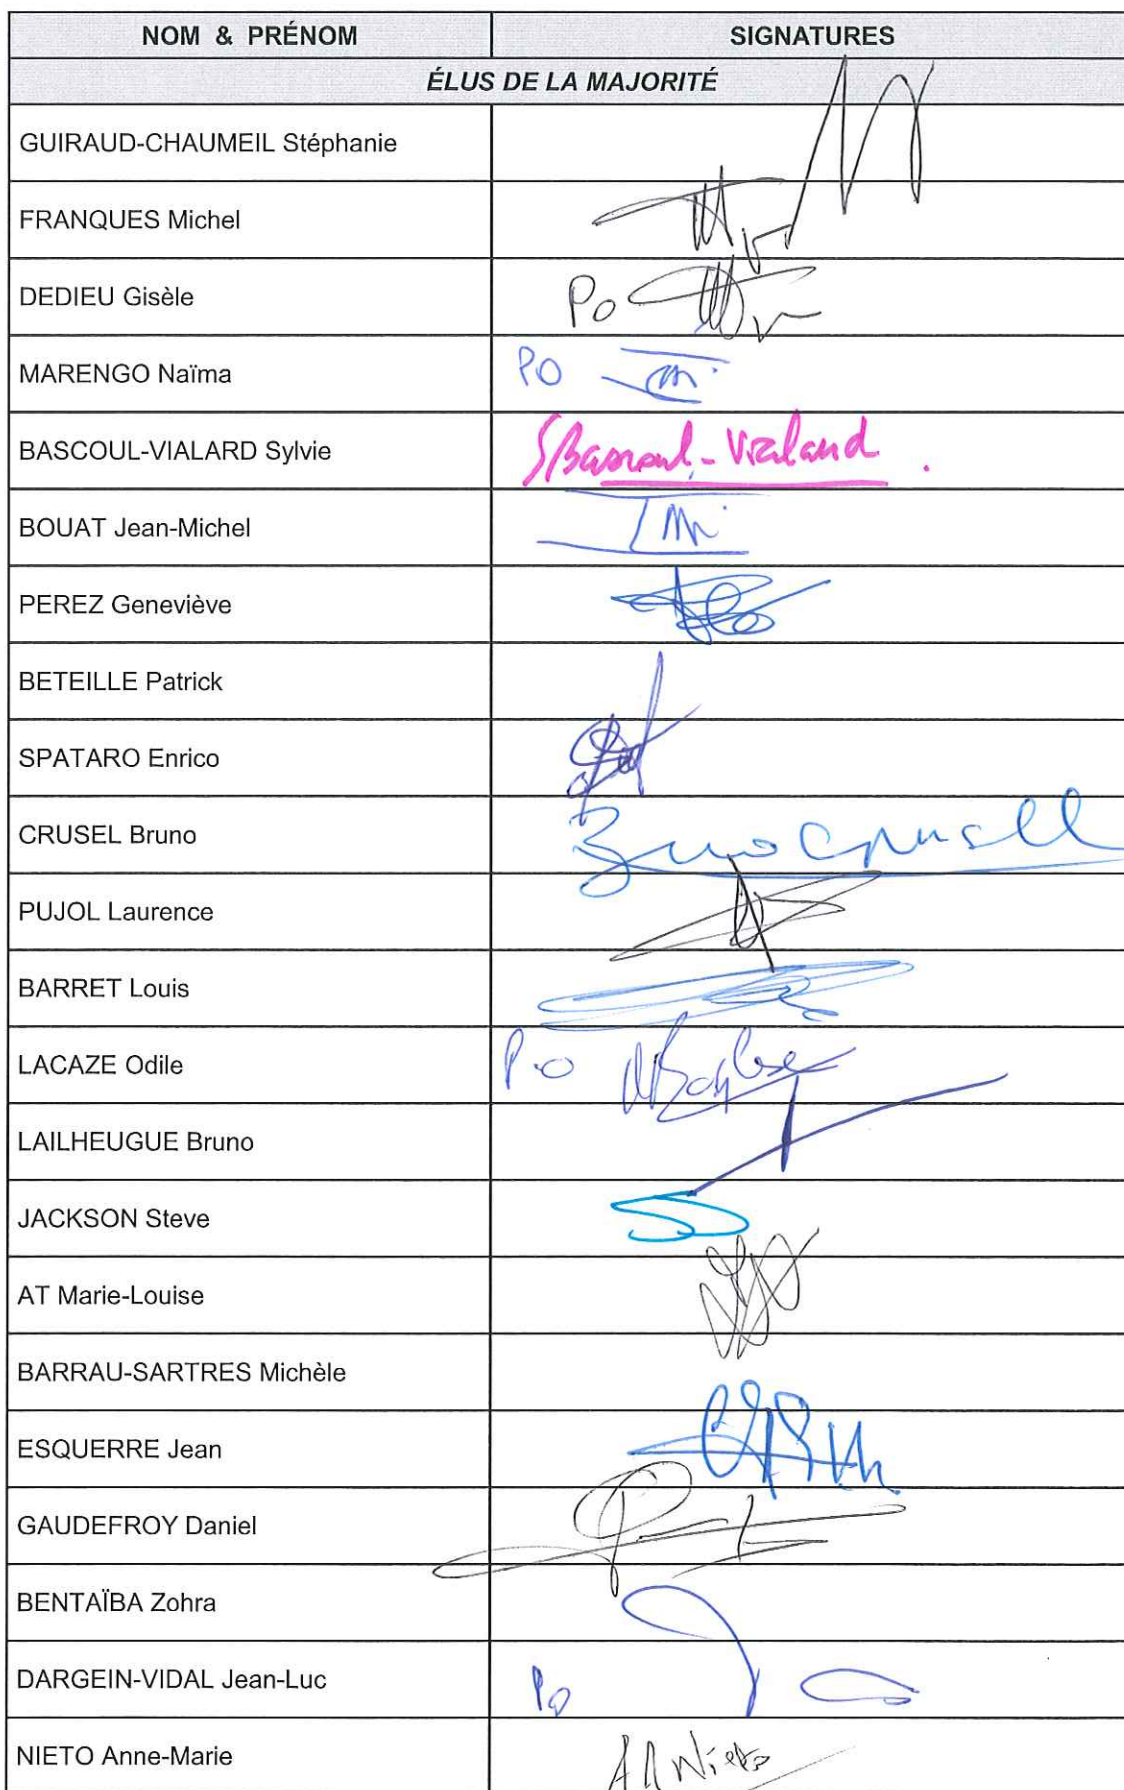 NOM & PRÉNOM SIGNATURES
ÉLUS DE LA MAJORITÉ
GUIRAUD-CHAUMEIL Stéphanie
FRANQUES Michel
DEDIEU Gisèle Po
MARENGO Naïma PO
BASCOUL-VIALARD Sylvie SBascoul-Vialard
BOUAT Jean-Michel
PEREZ Geneviève
BETEILLE Patrick
SPATARO Enrico
CRUSEL Bruno Bruno Crusel
PUJOL Laurence
BARRET Louis
LACAZE Odile P.o
LAILHEUGUE Bruno
JACKSON Steve
AT Marie-Louise
BARRAU-SARTRES Michèle
ESQUERRE Jean
GAUDEFROY Daniel
BENTAÏBA Zohra
DARGEIN-VIDAL Jean-Luc Po
NIETO Anne-Marie AM Nieto